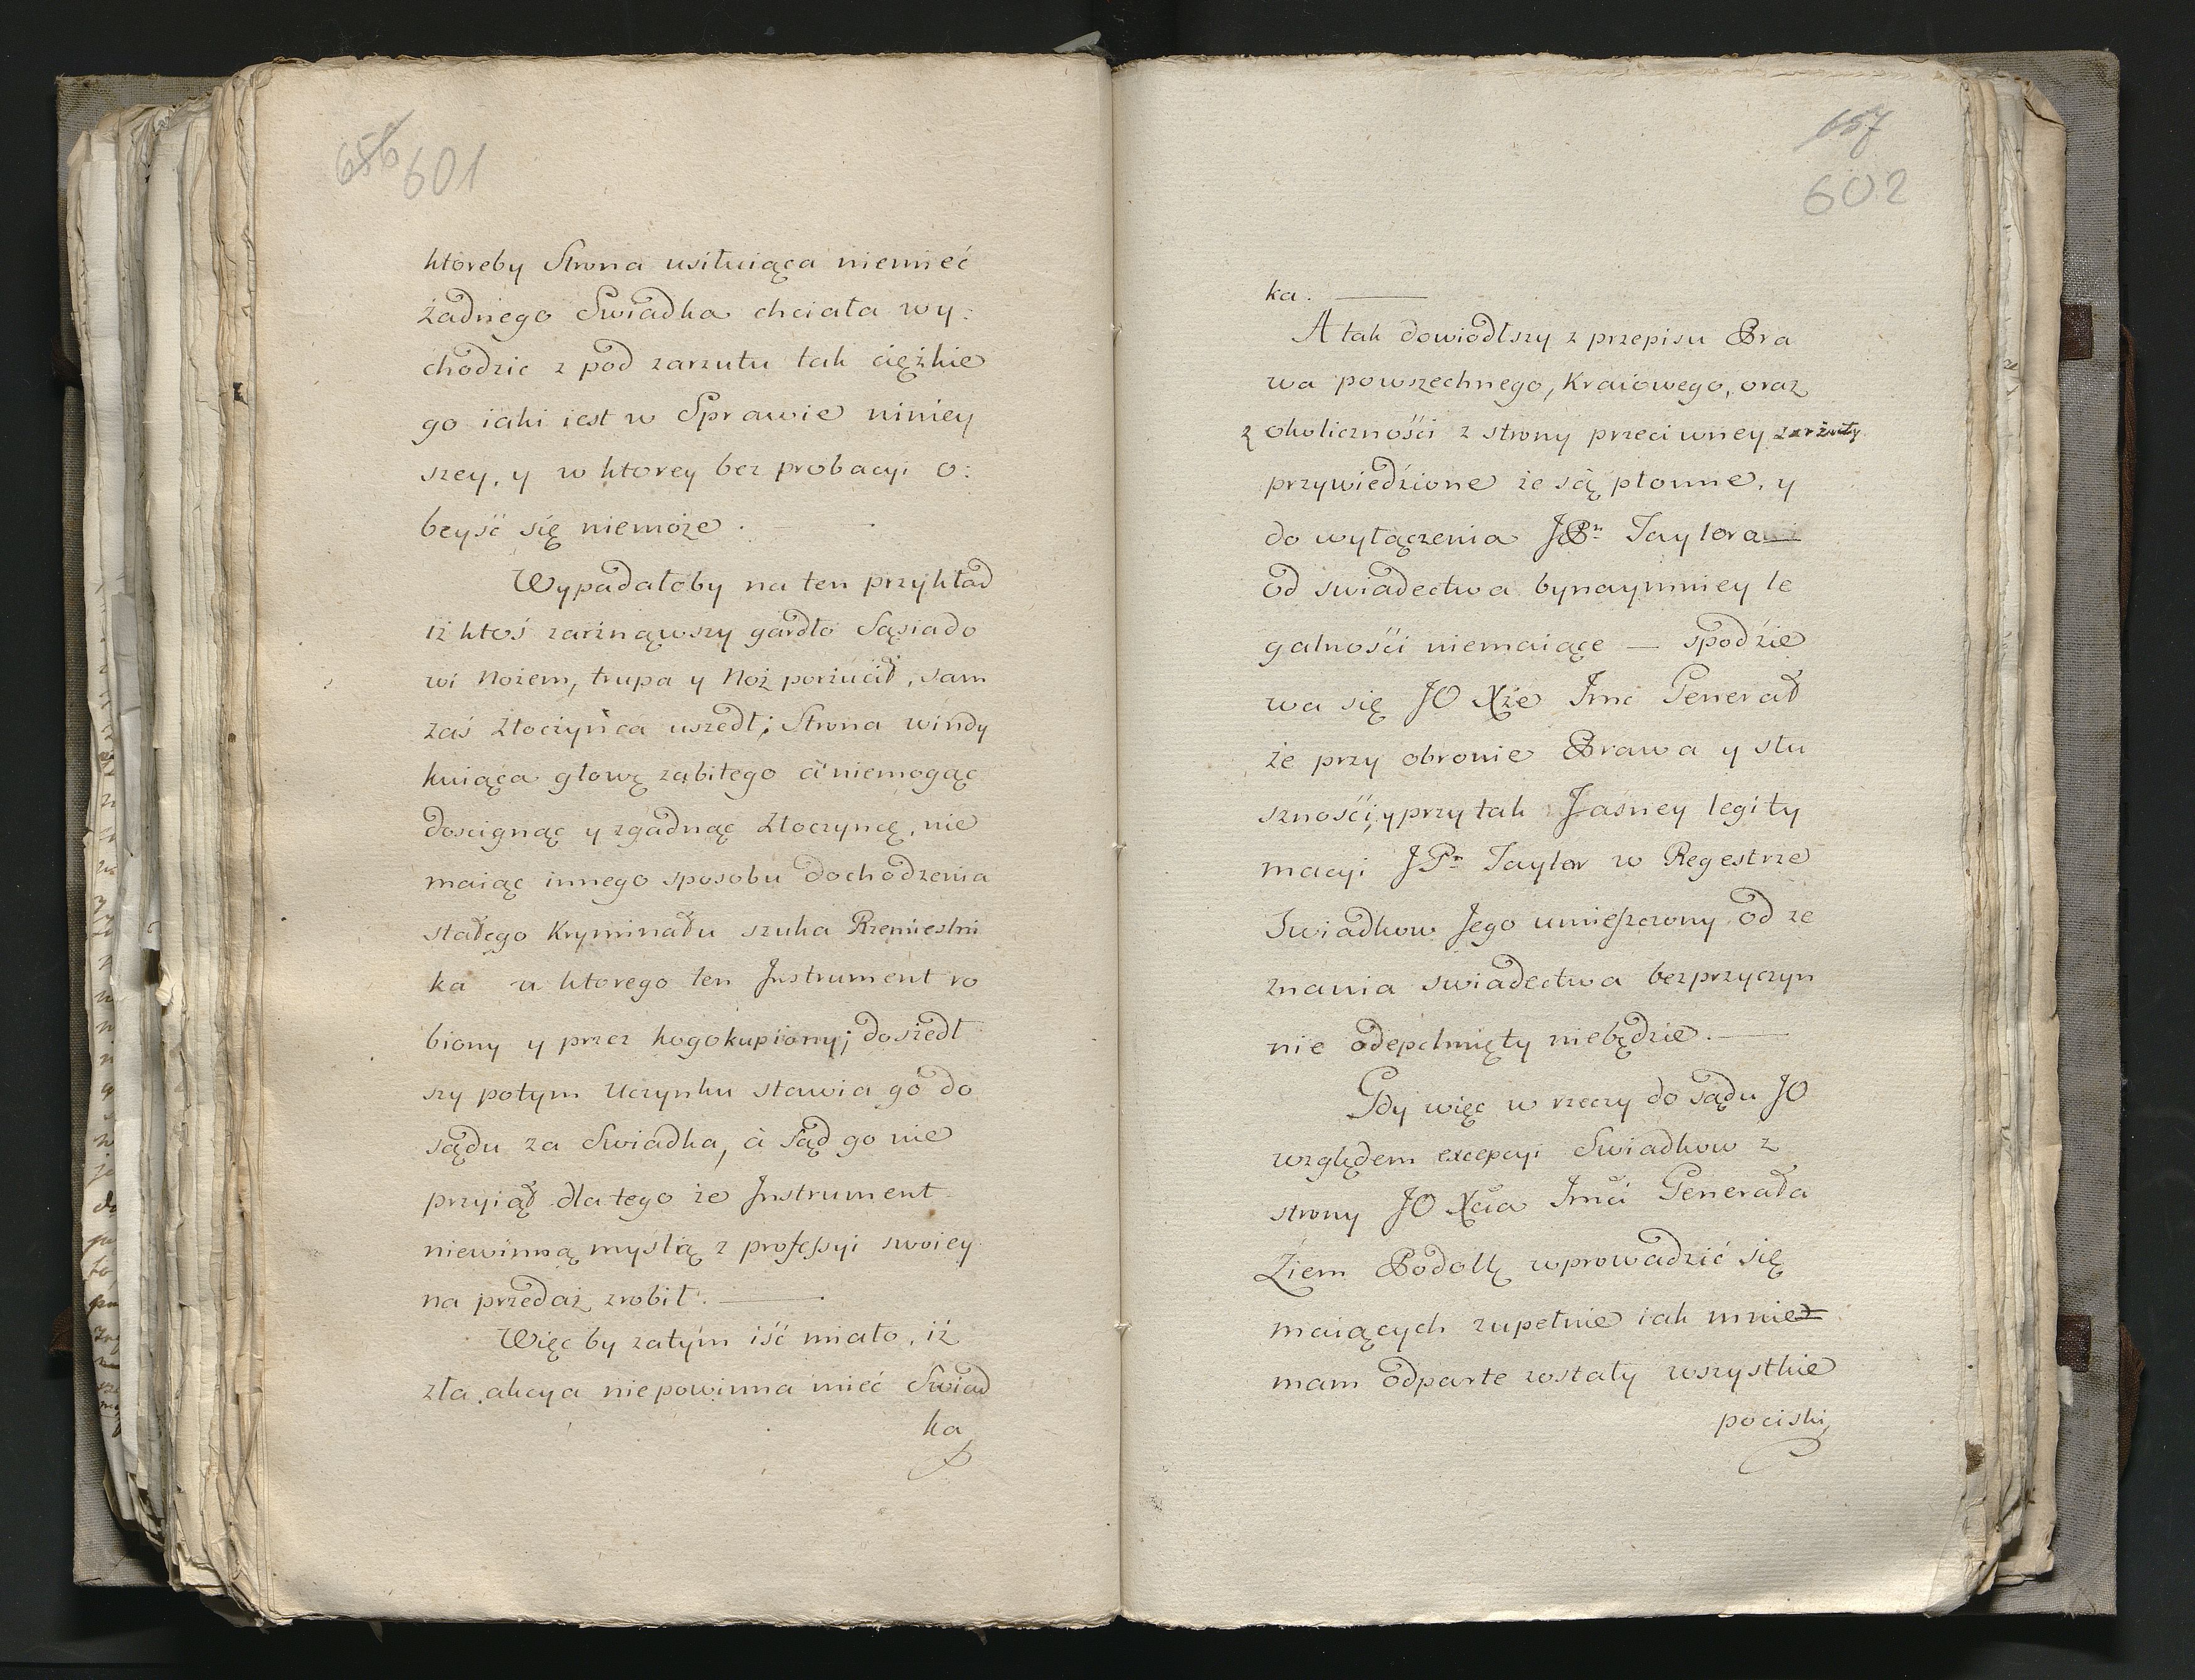 656 601
ktoreby Strona usiłuiąca niemieć
żadnego Swiadka chciała wy:
chodzic z pod zarzutu tak ciężkie
go iaki iest w Sprawie niniey
szey, y w ktorey bez probacyi o:
beyść się niemoże.
Wypadałoby na ten przykład
iż ktoś zarżnąwszy gardło Sąsiado
wi Nożem, trupa y Noż porzucił, sam
zaś złoczyńca uszedł; Strona windy
kuiąca głowę zabitego a niemogąc
doscignąc y zgadnąc złoczyncę, nie
maiąc innego sposobu dochodzenia
stałego Kryminału szuka Rzemieslni
ka u ktorego ten Instrument ro
biony y przez kogo kupiony; doszedł
szy potym Uczynku stawia go do
sądu za Swiadka, à Sąd go nie
przyiął dla tego że Instrument
niewinną myslią z professyi swoiey
na przedaż zrobił. —
Więc by zatym iść miało, iż
zła akcya niepowinna mieć Swiad
ka
657
602
ka. —
A tak dowiodłszy z przepisu Pra
wa powszechnego, Kraiowego, oraz
z okolicznośći z strony przeciwney zarzuty
przywiedźione że są płonne, y
do wyłączenia JPn Taylora
od swiadectwa bynaymniey le
galnośći niemaiące — spodźie
wa się JO Xże Imć Generał
że przy obronie Prawa y słu
sznośći, y przy tak Jasney legity
macyi JPn Taylor w Regestrze
Swiadkow Jego umieszczony od ze
znania swiadectwa bezprzyczyn
nie odepchnięty niebędzie. —
Gdy więc w rzeczy do sądu JO
względem excepcyi Swiadkow z
strony JO Xcia Imci Generała
Ziem Podolł wprowadzić się
maiących zupełnie iak mnie
mam odparte zostały wszystkie
pociski